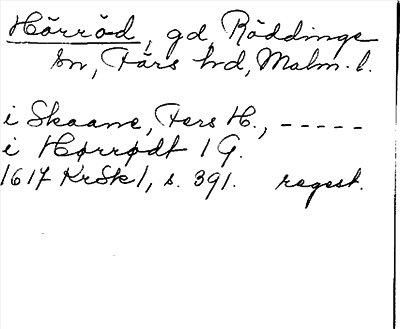 Hörröd, gd, Röddinge
sn, Färs hd, Malm. l.
i Skaane, Fers H., -----
i Hørrødt 1 G.
1617 KrSk1, s. 391. regest.